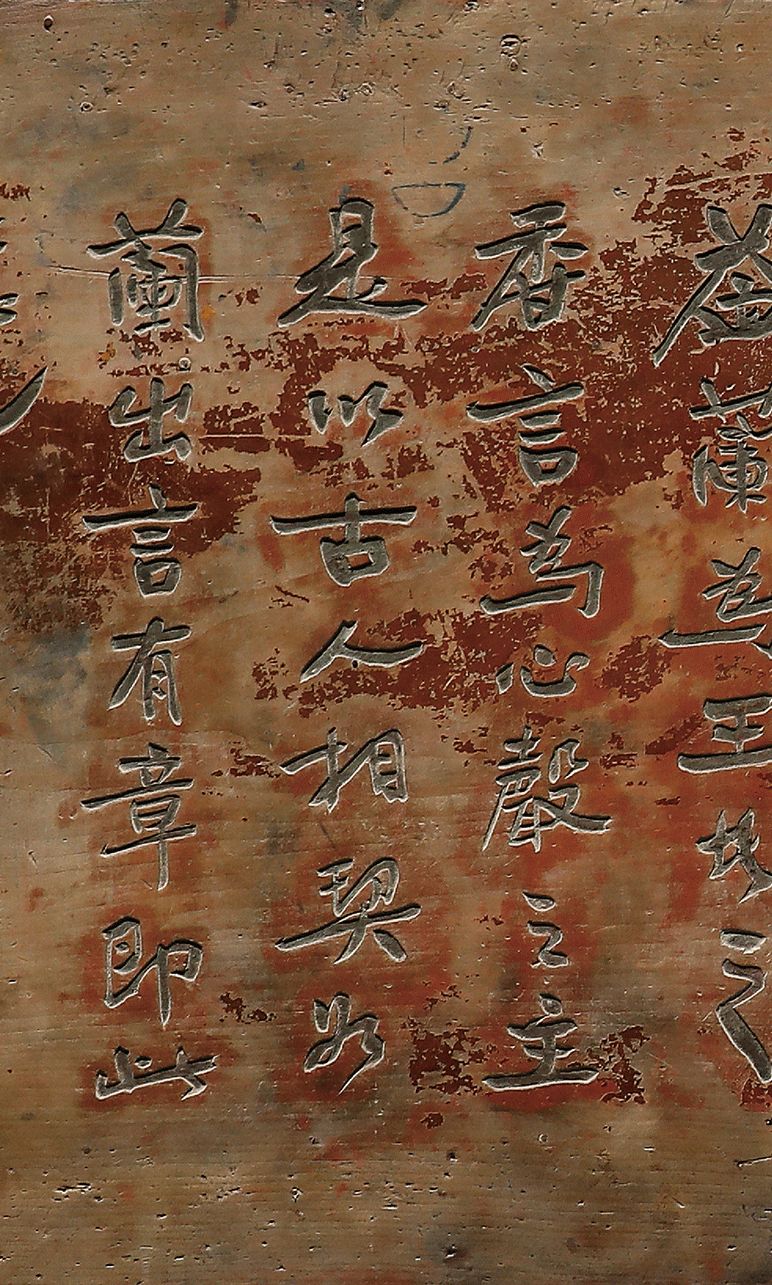 蓋蘭為王者之
香言為心聲之主
是以古人相契如
蘭出言有章即此